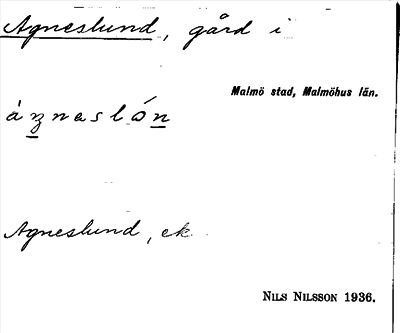 Agneslund, gård i
Malmö stad, Malmöhus län.
àŋnaslón
Agneslund, ek.
NILS NILSSON 1936.